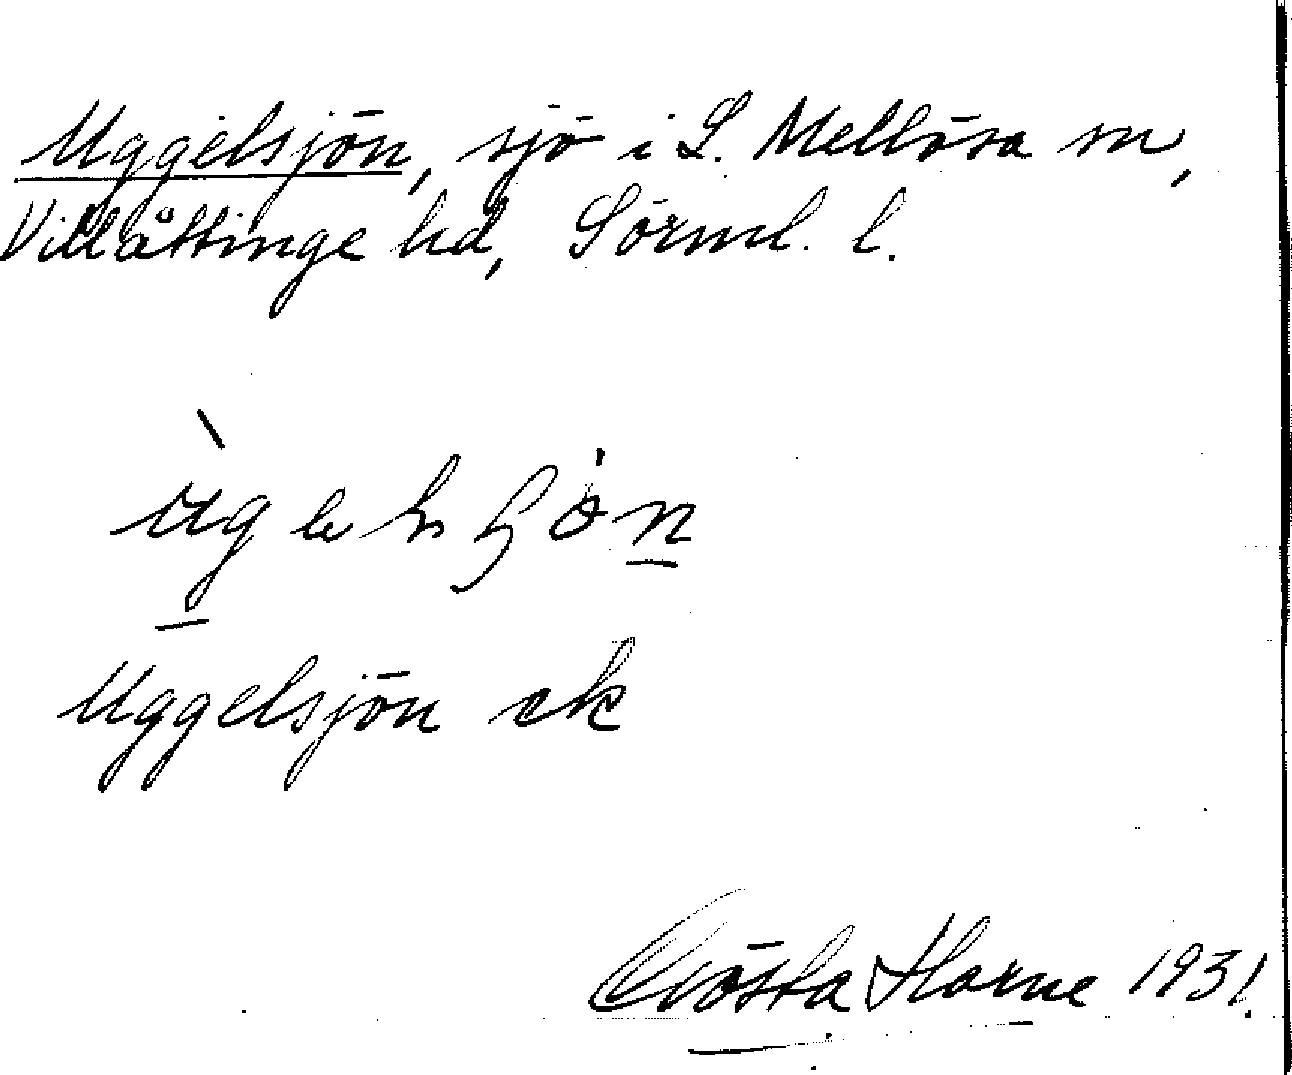 Uggelsjön, sjö i L. Mellösa sn,
Villåttinge hd, Sörml. l.
Uggelsjön ek
Gösta Horne 1931.